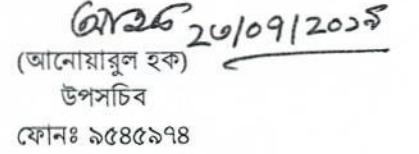 ২৩/০৭/২০১৯
(আনোয়ারুল হক)
উপসচিব
ফোনঃ ৯৫৪৫৯৭৪